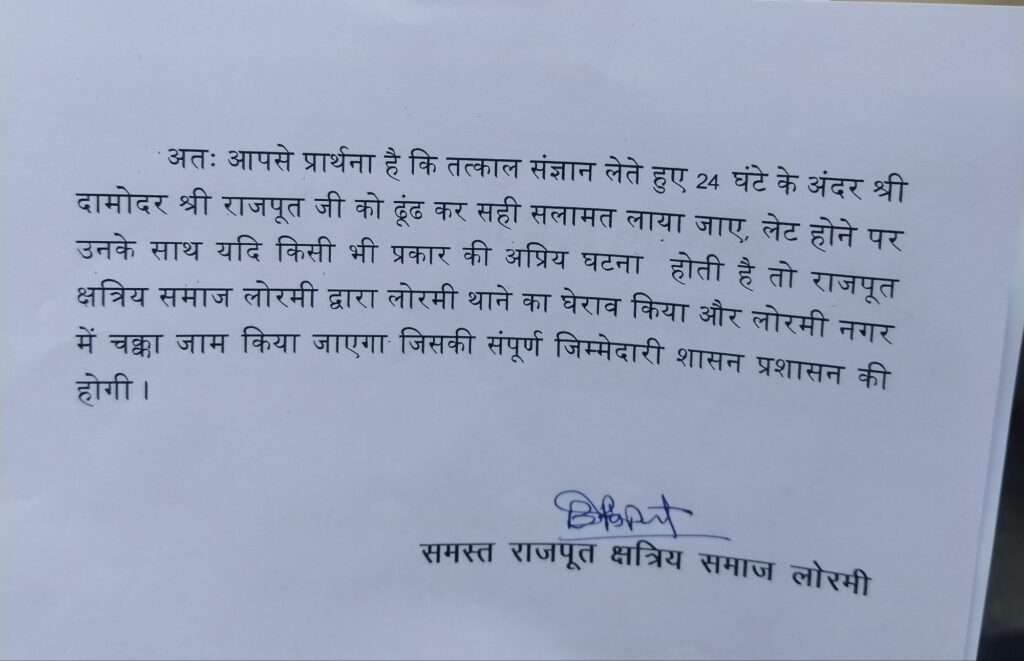 अतः आपसे प्रार्थना है कि तत्काल संज्ञान लेते हुए 24 घंटे के अंदर श्री
दामोदर श्री राजपूत जी को ढूंढ कर सही सलामत लाया जाए, लेट होने पर
उनके साथ यदि किसी भी प्रकार की अप्रिय घटना होती है तो राजपूत
क्षत्रिय समाज लोरमी द्वारा लोरमी थाने का घेराव किया और लोरमी नगर
में चक्का जाम किया जाएगा जिसकी संपूर्ण जिम्मेदारी शासन प्रशासन की
होगी।
समस्त राजपूत क्षत्रिय समाज लोरमी